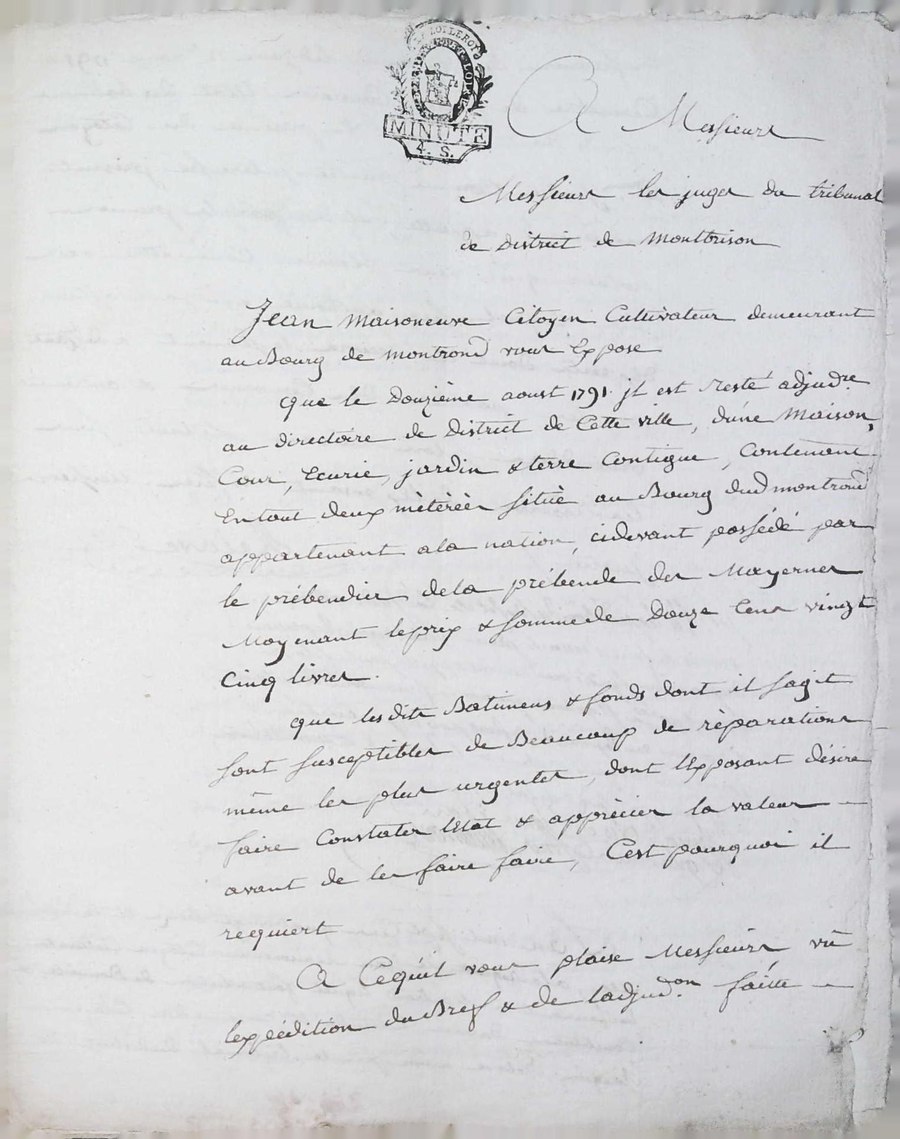 LA LOI LE ROI
MINUTE
4. S.
A Messieurs
Messieurs les juges du tribunal
de District de Montbrison
Jean Maisoneuve Citoyen Cultivateur demeurant
au Bourg de montrond vous Expose
que le Douzième aoust 1791. jl est resté adjud.re
au directoire de District de Cette ville, dune Maison,
Cour, Ecurie, jardin & terre Contigue, Contenant
En tout deux mètérées situé au Bourg dud montrond
appartenant a la nation, cidevant possédé par
le prébendier dela prébende des Mayernes
Moyenant le prix & somme de Douze Cens vingt
Cinq livres.
que lesdits Batimens & fonds dont il sagit
sont susceptibles de Beaucoup de rèparations
même les plus urgentes, dont lExposant désire
faire Constater lEtat & apprècier la valeur
avant de les faire faire, Cest pourquoi il
requiert
A Cequil vous plaise Messieurs vû
lexpédition du Bref & de ladjud.on faitte